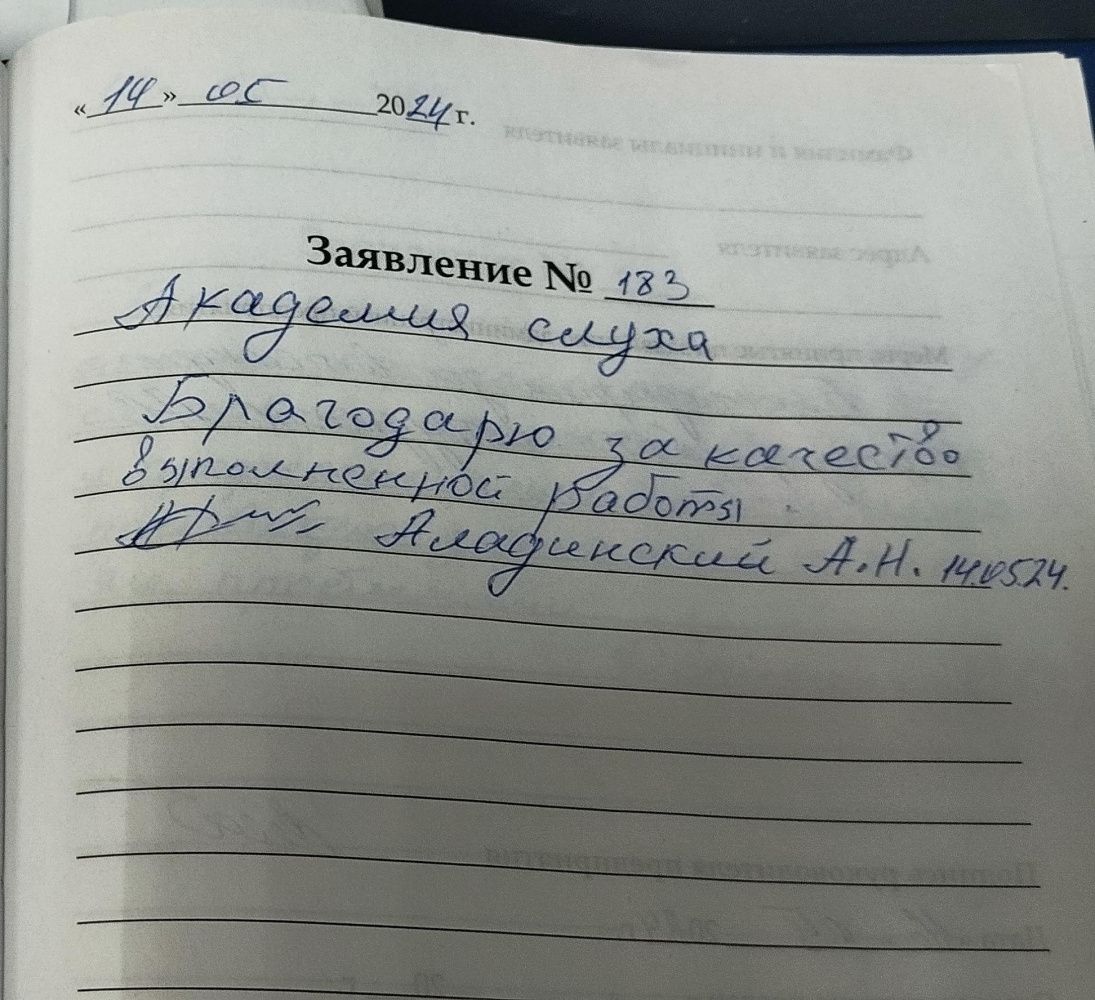 «14» 05 2024 г.
Заявление № 183
Академия слуха
Благодарю за качество
выполненной работы.
Аладинский А.Н. 14.05.24.